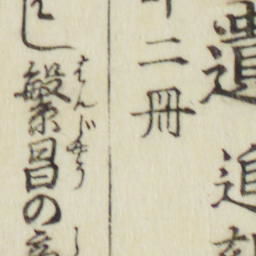 遺追
二冊
し繁昌の
はんじやう